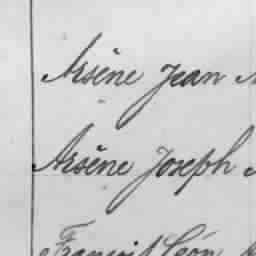 Arsène Jean
Arsène Joseph
François Léon